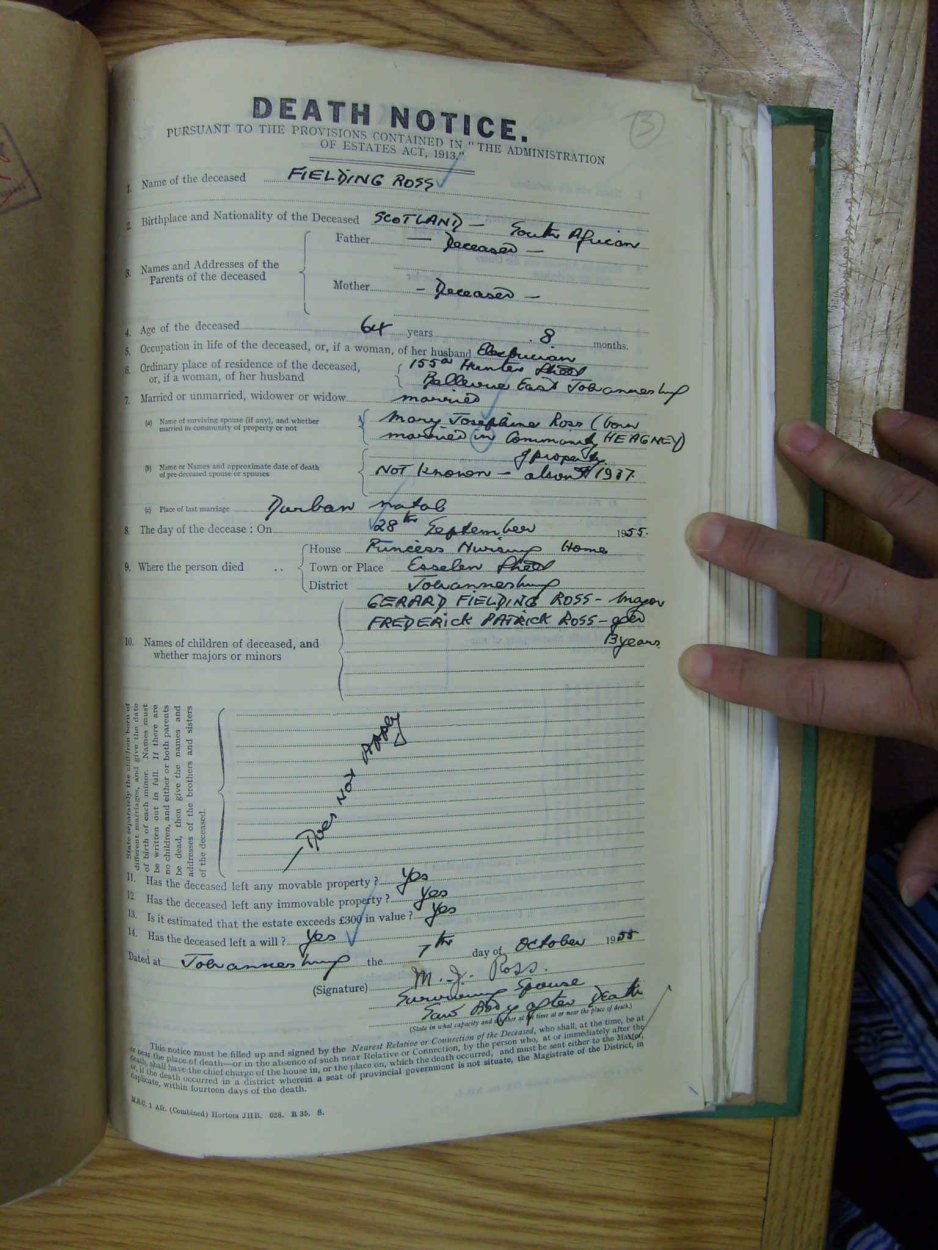 DEATH NOTICE.
3
PURSUANT TO THE PROVISIONS CONTAINED IN "THE ADMINISTRATION
OF ESTATES ACT, 1913."
1. Name of the deceased FIELDING ROSS
2. Birthplace and Nationality of the Deceased SCOTLAND — South African
3. Names and Addresses of the Parents of the deceased
Father — Deceased —
Mother — Deceased —
4. Age of the deceased 64 years 8 months.
5. Occupation in life of the deceased, or, if a woman, of her husband Electrician
6. Ordinary place of residence of the deceased, 155a Hunter Street
or, if a woman, of her husband Bellevue East Johannesburg
7. Married or unmarried, widower or widow married
(a) Name of surviving spouse (if any), and whether Mary Josephine Ross (born
married in community of property or not married in Community HEAGNEY)
of property
(b) Name or Names and approximate date of death
of pre-deceased spouse or spouses NOT Known — about 1937.
(c) Place of last marriage Durban Natal
8. The day of the decease : On 28th September 1955.
9. Where the person died ..
House Princess Nursing Home
Town or Place Esselen Street
District Johannesburg
10. Names of children of deceased, and
whether majors or minors
GERARD FIELDING ROSS - Major
FREDERICK PATRICK ROSS - aged
13 years.
State separately the children born of
different marriages, and give the date
of birth of each minor. Names must
be written out in full. If there are
no children, and either or both parents
be dead, then give the names and
addresses of the brothers and sisters
of the deceased.
Does NOT APPLY
11. Has the deceased left any movable property ? Yes
12. Has the deceased left any immovable property ? Yes
13. Is it estimated that the estate exceeds £300 in value ? Yes
14. Has the deceased left a will ? Yes
Dated at Johannesburg the 7th day of October 1955
(Signature) M. J. Ross.
Surviving Spouse
Saw Body after Death
(State in what capacity and whether at the time at or near the place of death.)
This notice must be filled up and signed by the Nearest Relative or Connection of the Deceased, who shall, at the time, be at
or near the place of death—or in the absence of such near Relative or Connection, by the person who, at or immediately after the
death, shall have the chief charge of the house in, or the place on, which the death occurred, and must be sent either to the Master,
or, if the death occurred in a district wherein a seat of provincial government is not situate, the Magistrate of the District, in
duplicate, within fourteen days of the death.
1 Afr. (Combined) Hortors JHB. 628. B 35. S.